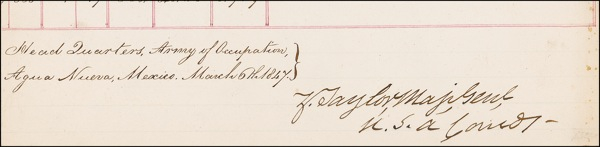 Head Quarters, Army of Occupation,
Agua Nueva, Mexico. March 6th. 1847.
Z. Taylor Maj. Genl,
U. S. A Comdg